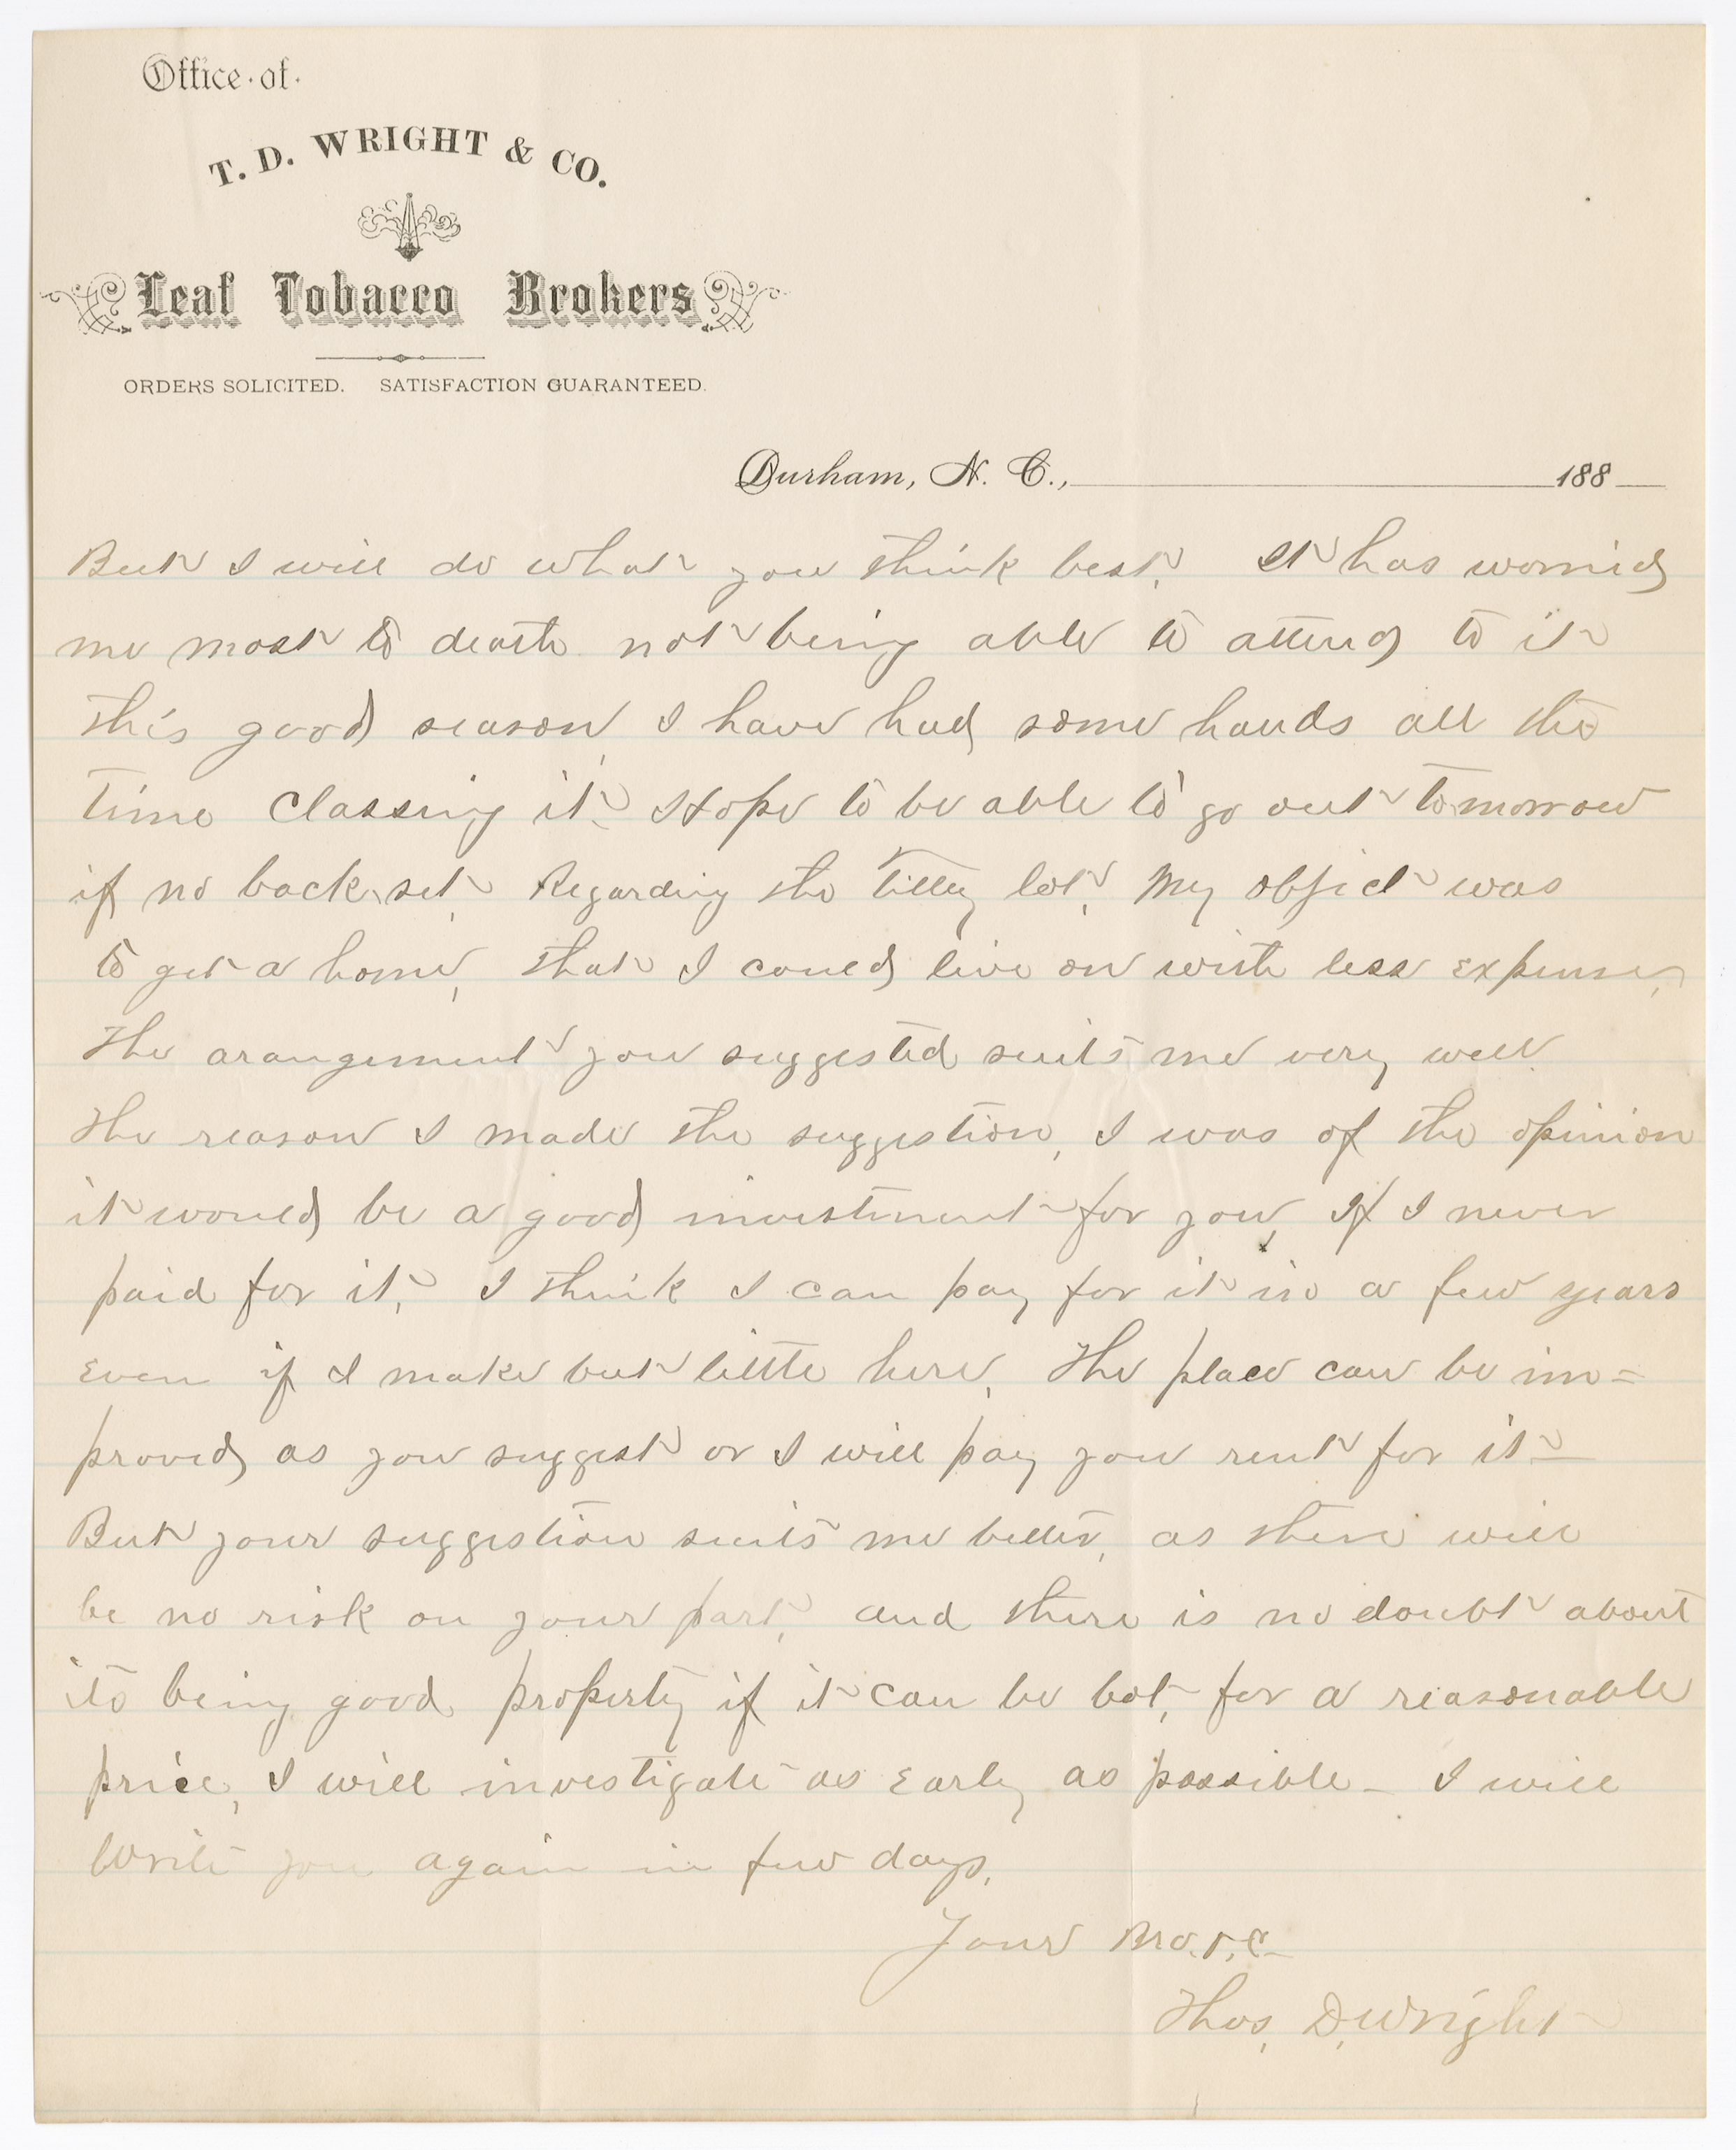 Office of
T. D. WRIGHT & CO.
Leaf Tobacco Brokers
ORDERS SOLICITED. SATISFACTION GUARANTEED.
Durham, N. C., 188
But I will do what you think best. It has worried
me most to death not being able to attend to it
this good season, I have had some hands all the
time Classing it. Hope to be able to go out tomorrow
if no back set. Regarding the Tilley lot, My object was
to get a home, that I could live on with less expense,
The arangement you suggested suits me very well.
The reason I made the suggestion, I was of the opinion
it would be a good investment for you, If I never
paid for it, I think I can pay for it in a few years
even if I make but little here, The place can be im=
proved as you suggest or I will pay you rent for it –
But your suggestion suits me better, as there will
be no risk on your part, and there is no doubt about
its being good property if it can be bot, for a reasonable
price, I will investigate as Early as possible – I will
Write you again in few days.
Your Bro. &c
Thos, D, Wright